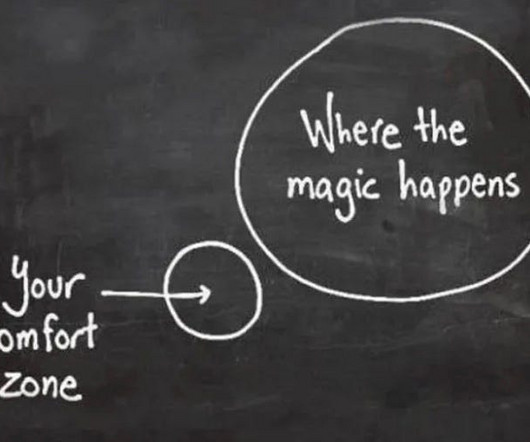 Where the
magic happens
Your
omfort
zone